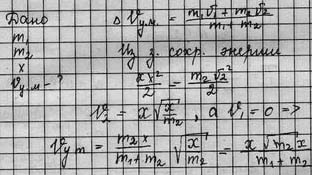 Дано
m₁
m₂
x
v ц.м. - ?
v ц.м. = (m₁v₁ + m₂v₂)/(m₁ + m₂)
Из з. сохр. энергии
xx²/2 = m₂v₂²/2
v₂ = x√(x/m₂), а v₁ = 0 =>
v ц m = (m₂x/(m₁ + m₂))√(x/m₂) = x√(m₂x)/(m₁ + m₂)